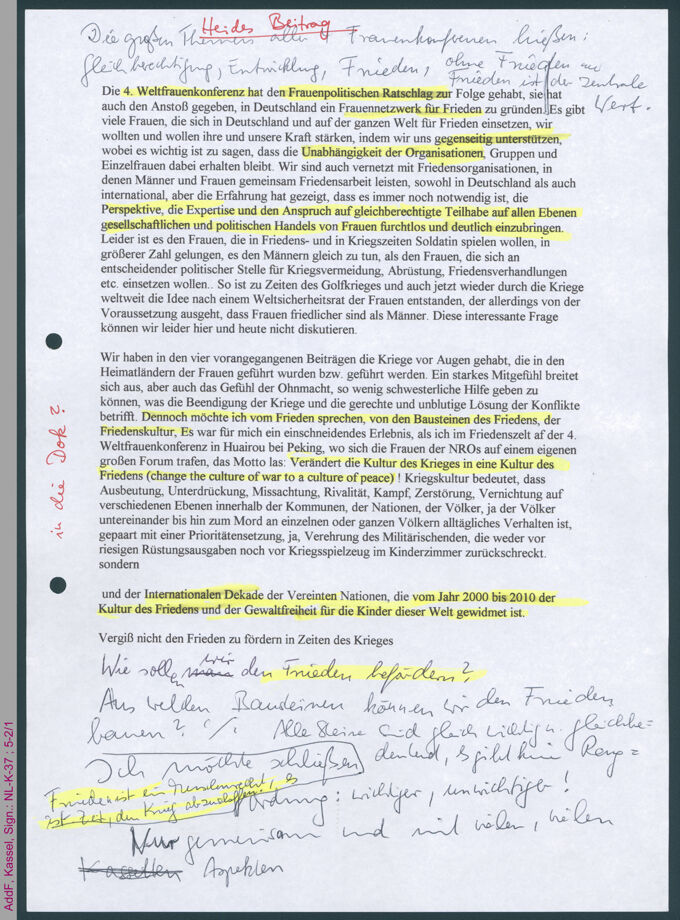 Heides Beitrag
Die großen Themen aller 4 Frauenkonferenzen hießen:
Gleichberechtigung, Entwicklung, Frieden, ohne Frieden
Frieden ist der zentrale
Wert.
Die 4. Weltfrauenkonferenz hat den Frauenpolitischen Ratschlag zur Folge gehabt, sie hat
auch den Anstoß gegeben, in Deutschland ein Frauennetzwerk für Frieden zu gründen. Es gibt
viele Frauen, die sich in Deutschland und auf der ganzen Welt für Frieden einsetzen, wir
wollten und wollen ihre und unsere Kraft stärken, indem wir uns gegenseitig unterstützen,
wobei es wichtig ist zu sagen, dass die Unabhängigkeit der Organisationen, Gruppen und
Einzelfrauen dabei erhalten bleibt. Wir sind auch vernetzt mit Friedensorganisationen, in
denen Männer und Frauen gemeinsam Friedensarbeit leisten, sowohl in Deutschland als auch
international, aber die Erfahrung hat gezeigt, dass es immer noch notwendig ist, die
Perspektive, die Expertise und den Anspruch auf gleichberechtigte Teilhabe auf allen Ebenen
gesellschaftlichen und politischen Handels von Frauen furchtlos und deutlich einzubringen.
Leider ist es den Frauen, die in Friedens- und in Kriegszeiten Soldatin spielen wollen, in
größerer Zahl gelungen, es den Männern gleich zu tun, als den Frauen, die sich an
entscheidender politischer Stelle für Kriegsvermeidung, Abrüstung, Friedensverhandlungen
etc. einsetzen wollen.. So ist zu Zeiten des Golfkrieges und auch jetzt wieder durch die Kriege
weltweit die Idee nach einem Weltsicherheitsrat der Frauen entstanden, der allerdings von der
Voraussetzung ausgeht, dass Frauen friedlicher sind als Männer. Diese interessante Frage
können wir leider hier und heute nicht diskutieren.
Wir haben in den vier vorangegangenen Beiträgen die Kriege vor Augen gehabt, die in den
Heimatländern der Frauen geführt wurden bzw. geführt werden. Ein starkes Mitgefühl breitet
sich aus, aber auch das Gefühl der Ohnmacht, so wenig schwesterliche Hilfe geben zu
können, was die Beendigung der Kriege und die gerechte und unblutige Lösung der Konflikte
betrifft. Dennoch möchte ich vom Frieden sprechen, von den Bausteinen des Friedens, der
Friedenskultur, Es war für mich ein einschneidendes Erlebnis, als ich im Friedenszelt af der 4.
Weltfrauenkonferenz in Huairou bei Peking, wo sich die Frauen der NROs auf einem eigenen
großen Forum trafen, das Motto las: Verändert die Kultur des Krieges in eine Kultur des
Friedens (change the culture of war to a culture of peace) ! Kriegskultur bedeutet, dass
Ausbeutung, Unterdrückung, Missachtung, Rivalität, Kampf, Zerstörung, Vernichtung auf
verschiedenen Ebenen innerhalb der Kommunen, der Nationen, der Völker, ja der Völker
untereinander bis hin zum Mord an einzelnen oder ganzen Völkern alltägliches Verhalten ist,
gepaart mit einer Prioritätensetzung, ja, Verehrung des Militärischenden, die weder vor
riesigen Rüstungsausgaben noch vor Kriegsspielzeug im Kinderzimmer zurückschreckt.
sondern
in die Dok?
und der Internationalen Dekade der Vereinten Nationen, die vom Jahr 2000 bis 2010 der
Kultur des Friedens und der Gewaltfreiheit für die Kinder dieser Welt gewidmet ist.
Vergiß nicht den Frieden zu fördern in Zeiten des Krieges
Wie sollen man wir den Frieden befördern?
Aus welchen Bausteinen können wir den Frieden
bauen? ·/. Alle Steine sind gleich wichtig u. gleichbe=
deutend, es gibt kein Rang=
Ich möchte schließen
Frieden ist ein Menschenrecht, es
ist Zeit, den Krieg abzuschaffen!
ordnung: wichtiger, unwichtiger!
Nur gemeinsam und mit vielen, vielen
Kassetten Aspekten
AddF, Kassel, Sign.: NL-K-37 ; 5-2/1